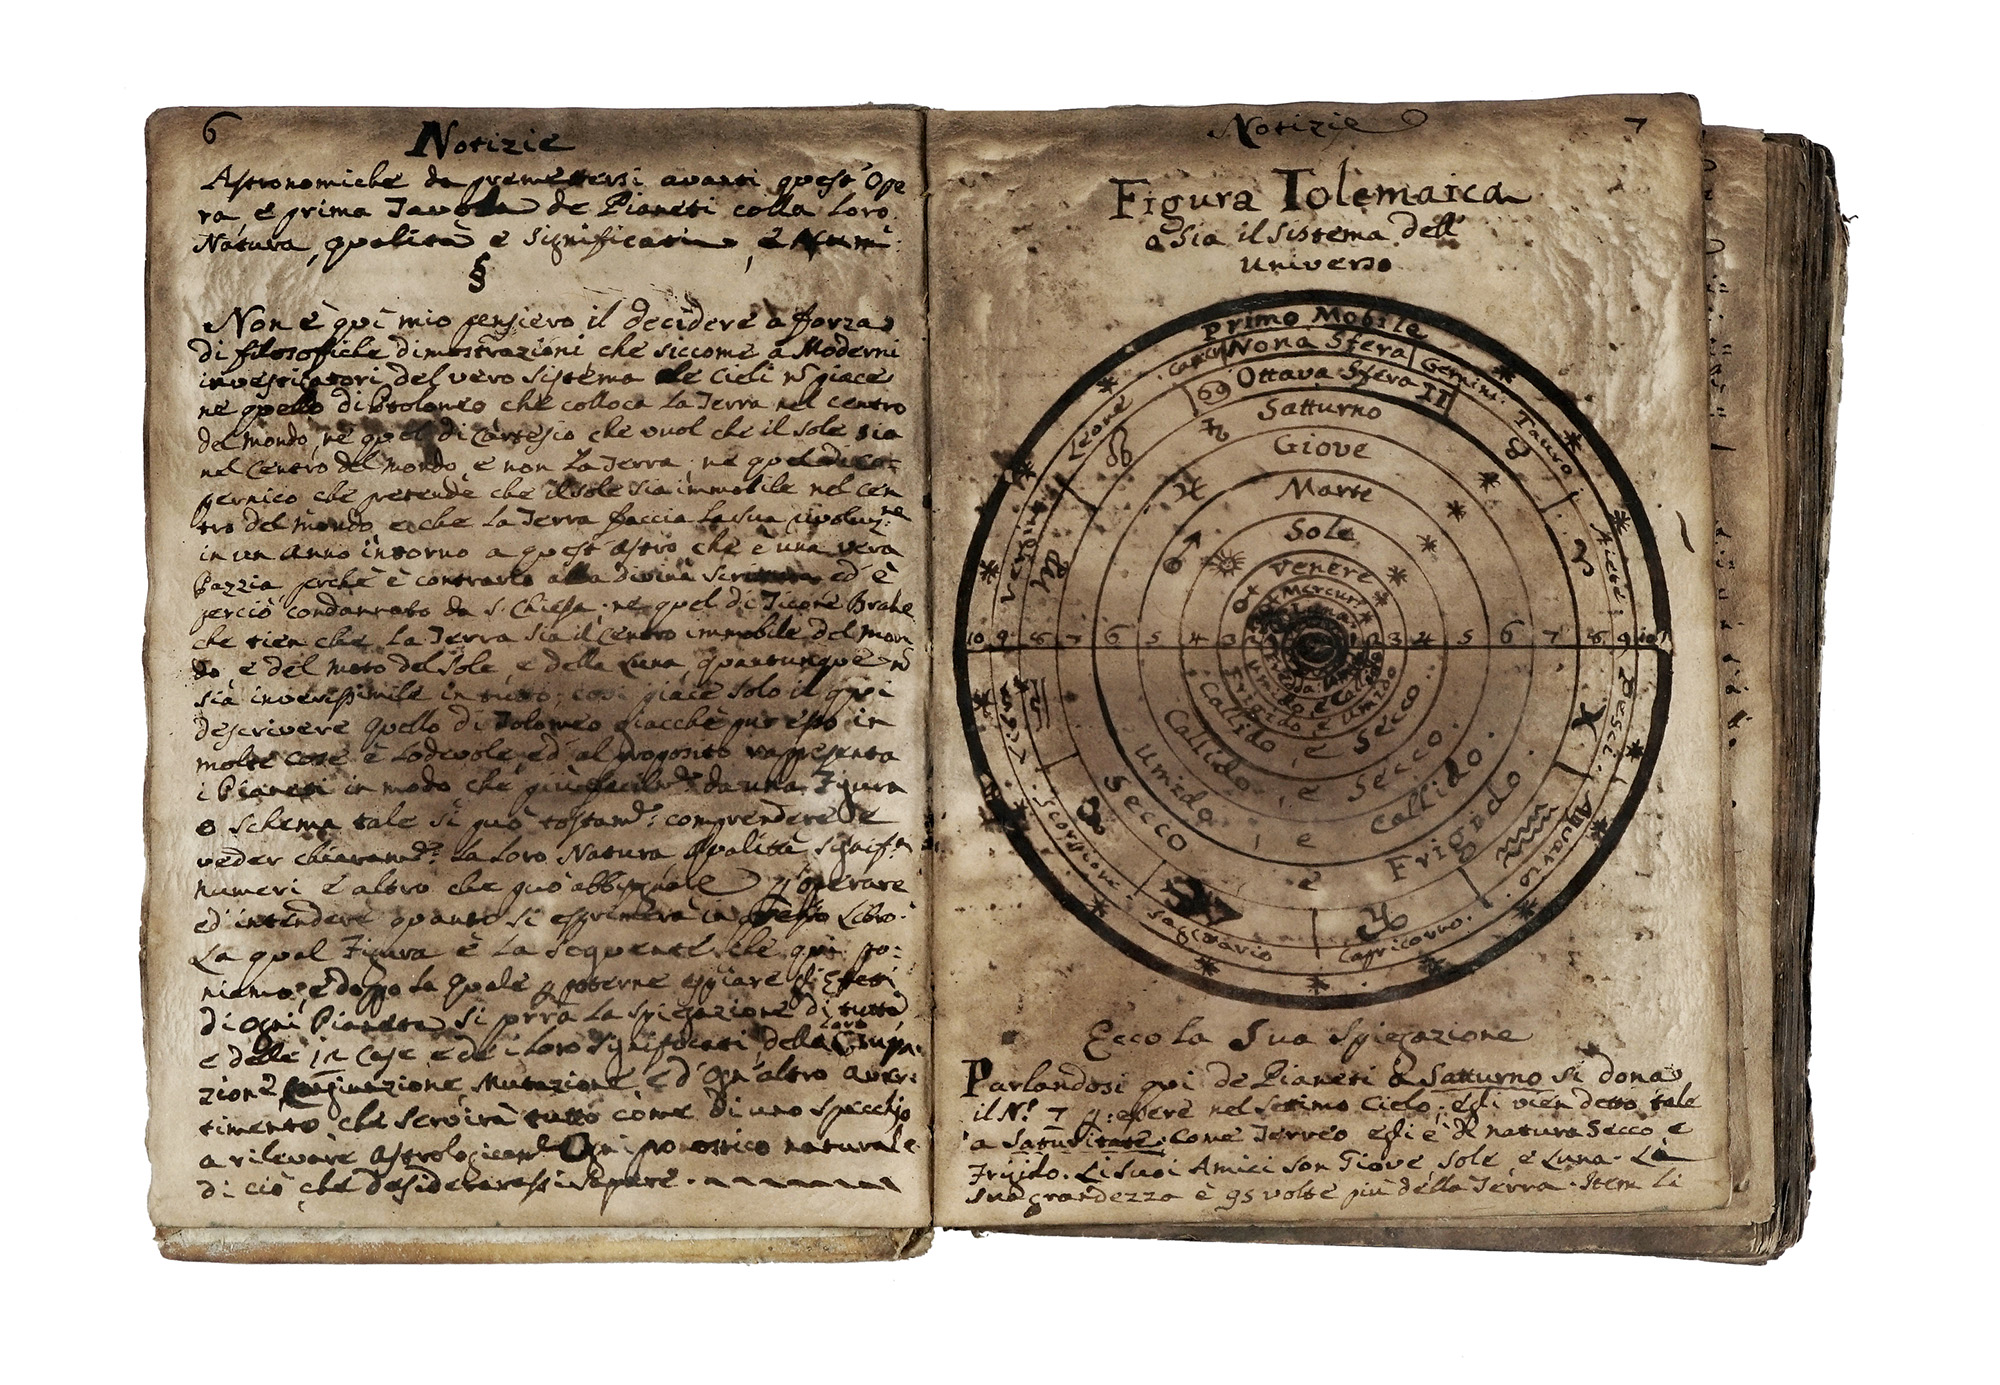 6
Notizie
Astronomiche da premettersi avanti quest'Ope
ra, e prima Tavola de Pianeti colla loro
Natura, qualità e significati, e Num:
§
Non è quì mio pensiero il decidere a forza
di filosofiche dimostrazioni che siccome a Moderni
investigatori del vero Sistema de Cieli ñ piace
ne quello di Ptolomeo che colloca La Terra nel centro
del mondo, ne quel di Cartesio che vuol che il Sole sia
nel Centro del mondo, e non La Terra, ne quel di Co=
pernico che pretende che il sole sia immobile nel cen
tro del mondo e che La Terra faccia La sua rivoluz:ne
in un anno intorno a quest'Astro che è una vera
Pazzia perchè è contrario alla divina Scrittura ed è
perciò condannato da S. Chiesa, ne quel di Ticone Brahe
che tien che La Terra sia il Centro immobile del Mon
do, e del moto del Sole, e della Luna, quantunque ñ
sia inverissimile in tutto; così piace solo il quì
descrivere quello di Tolomeo giacchè pur esso in
molte cose è Lodevole, ed al proposito rappresenta
i Pianeti in modo che più da una Figura
o schema tale si può tostam: comprendere e
veder chiaram: La loro Natura Qualità signif:
numeri e altro che può abbisognare p operare
ed intendere quanto si esprimerà in Libro.
La qual Figura è La Seguente che quì po:
niamo, e dopo La Quale p poterne Effetti
di Ogni Pianeta si prrà La Spiegazione di tutto
e delle 12 Case e de i loro significati, della loro
zione, Mutazione ed Ogn'altro aver:
timento che servirà tutto come di uno specchio
a rilevare Astrologicam Ogni pronostico naturale
di ciò che desiderarassi Sapere.
Notizie
7
Figura Tolemaica
o sia il Sistema dell'
universo
Primo Mobile
Nona Sfera
Gemini.
Ottava Sfera
69
II
Tauro
Leone
Satturno
Giove
Marte
Sole
Venere
Mercuri
Luna
Ariete.
Vergine
10 9 8 7 6 5 4 3 2 3 4 5 6 7 8 9 10
Pesci.
Frigido, e Umido
Callido, e Secco.
Callido, e Secco.
Umido, e Callido.
Secco e Frigido.
Scorpione
Aquario.
Sagitario
Capricorno.
Ecco La Sua Spiegazione
Parlandosi quì de Pianeti a Satturno si dona
il N. 7 p: essere nel Settimo Cielo, egli vien detto tale
a Saturitate, come Terreo egli è di natura Secco e
Frigido. Li suoi Amici son Giove, Sole, e Luna. La
sua grandezza è 95 volte più della Terra. Item Li